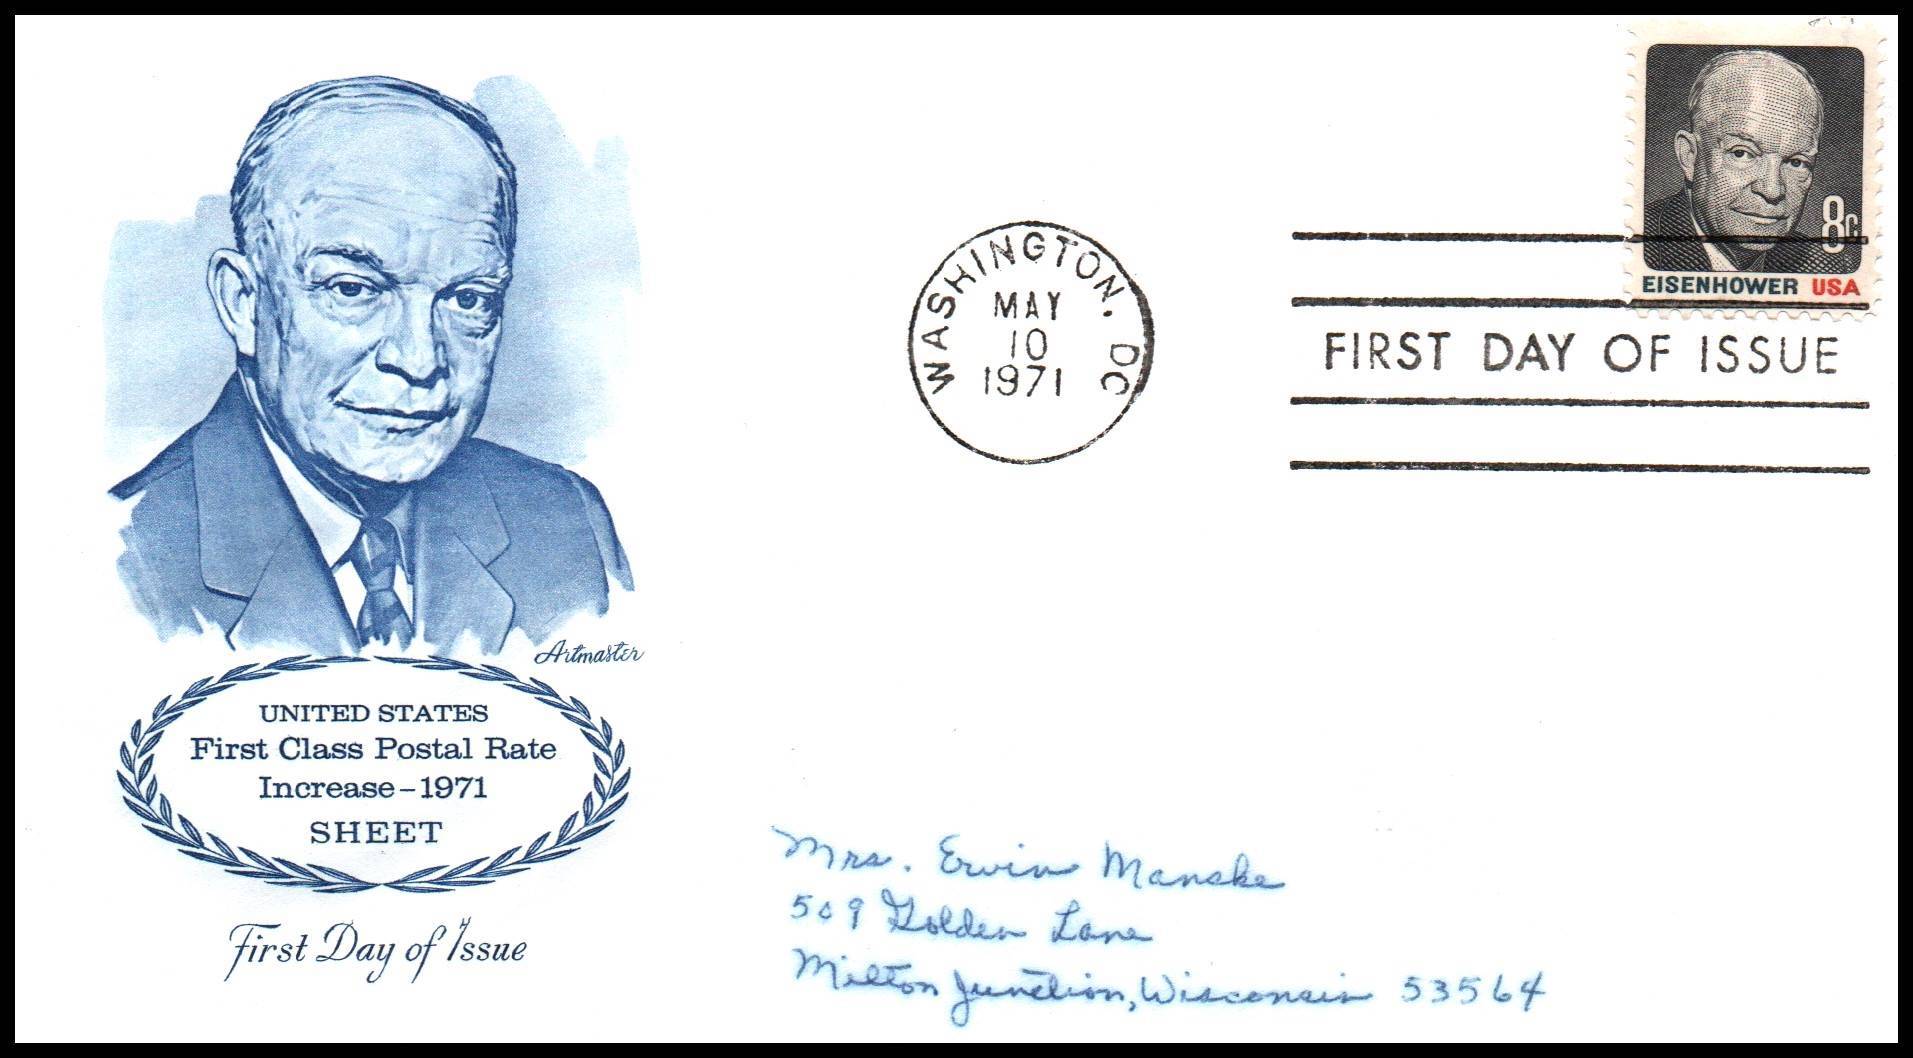 8c
EISENHOWER USA
WASHINGTON, DC
MAY
10
1971
FIRST DAY OF ISSUE
Artmaster
UNITED STATES
First Class Postal Rate
Increase–1971
SHEET
First Day of Issue
Mrs. Ervin Manske
509 Golden Lane
Milton Junction, Wisconsin 53564